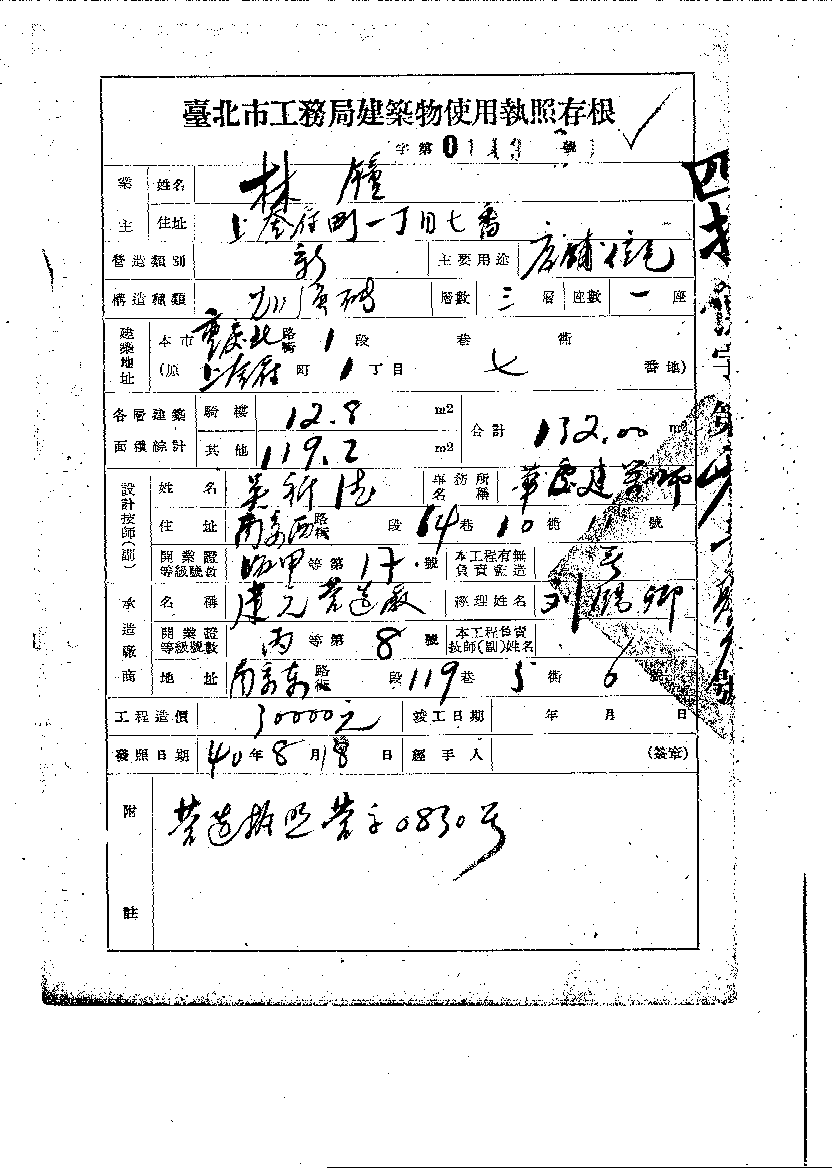 臺北市工務局建築物使用執照存根
字第 號
業主 姓名 林
住址 上奎府町一丁目七番
營造類別 新 主要用途 店舖住宅
構造種類 加強磚 層數 三 層 座數 一 座
建築地址 本市 重慶北 路街 1 段 巷 衖
(原 上奎府 町 1 丁目 七 番地)
各層建築面積總計 騎樓 12.8 m2 合計 132.00 m2
其他 119.2 m2
設計技師(副) 姓名 吳 事務所名稱 華 建築師
住址 南京西 路街 段 64 巷 10 衖 11 號
開業證等級號數 甲 等第 17 號 本工程有無負責監造
承造廠商 名稱 建元營造廠 經理姓名 卿
開業證等級號數 丙 等第 8 號 本工程負責技師(副)姓名
地址 南京東 路街 段 119 巷 5 衖 6
工程造價 30000元 竣工日期 年 月 日
發照日期 40年8月18日 經手人 (簽章)
附註 營造執照營字0830号